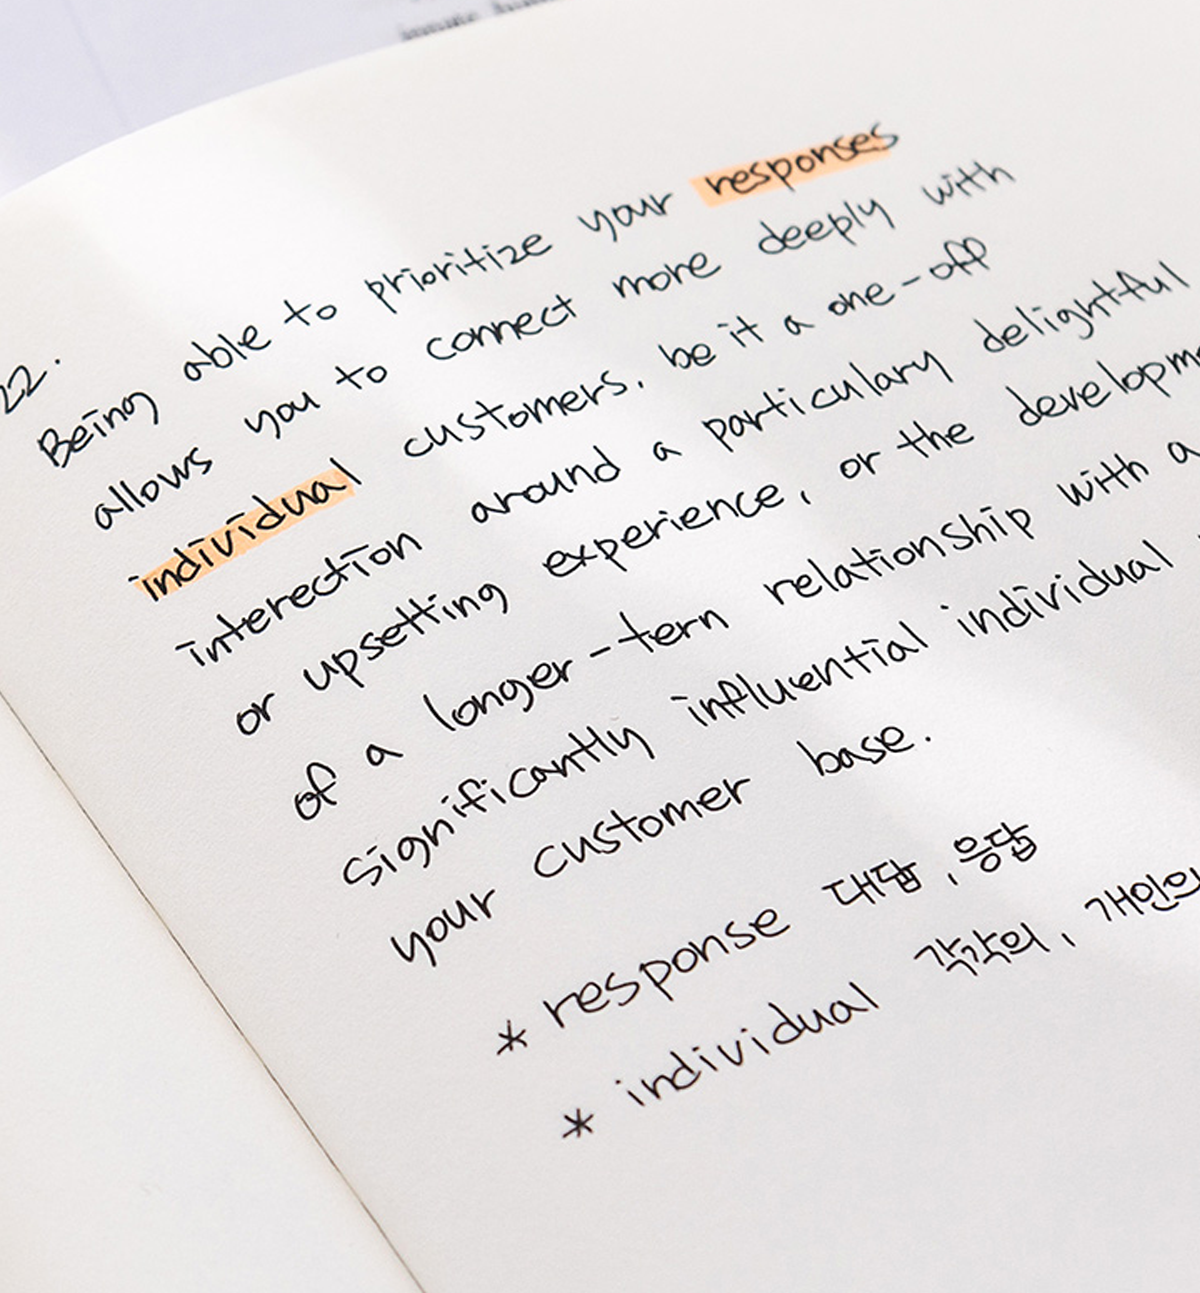 22.
Being able to prioritize your responses
allows you to connect more deeply with
individual customers, be it a one-off
interection around a particulary delightful
or upsetting experience, or the developm
of a longer-tern relationship with a
significantly influential individual
your customer base.
* response 대답, 응답
* individual 각각의, 개인의